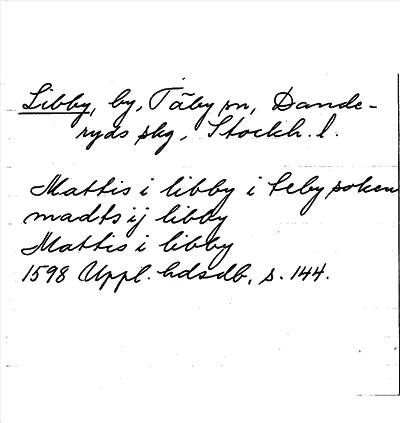 Libby, by, Täby sn, Dande-
ryds skg, Stockh. l.
Mattis i libby i teby soken
madts ij libby
Mattis i libby
1598 Uppl. hdsdb, s. 144.